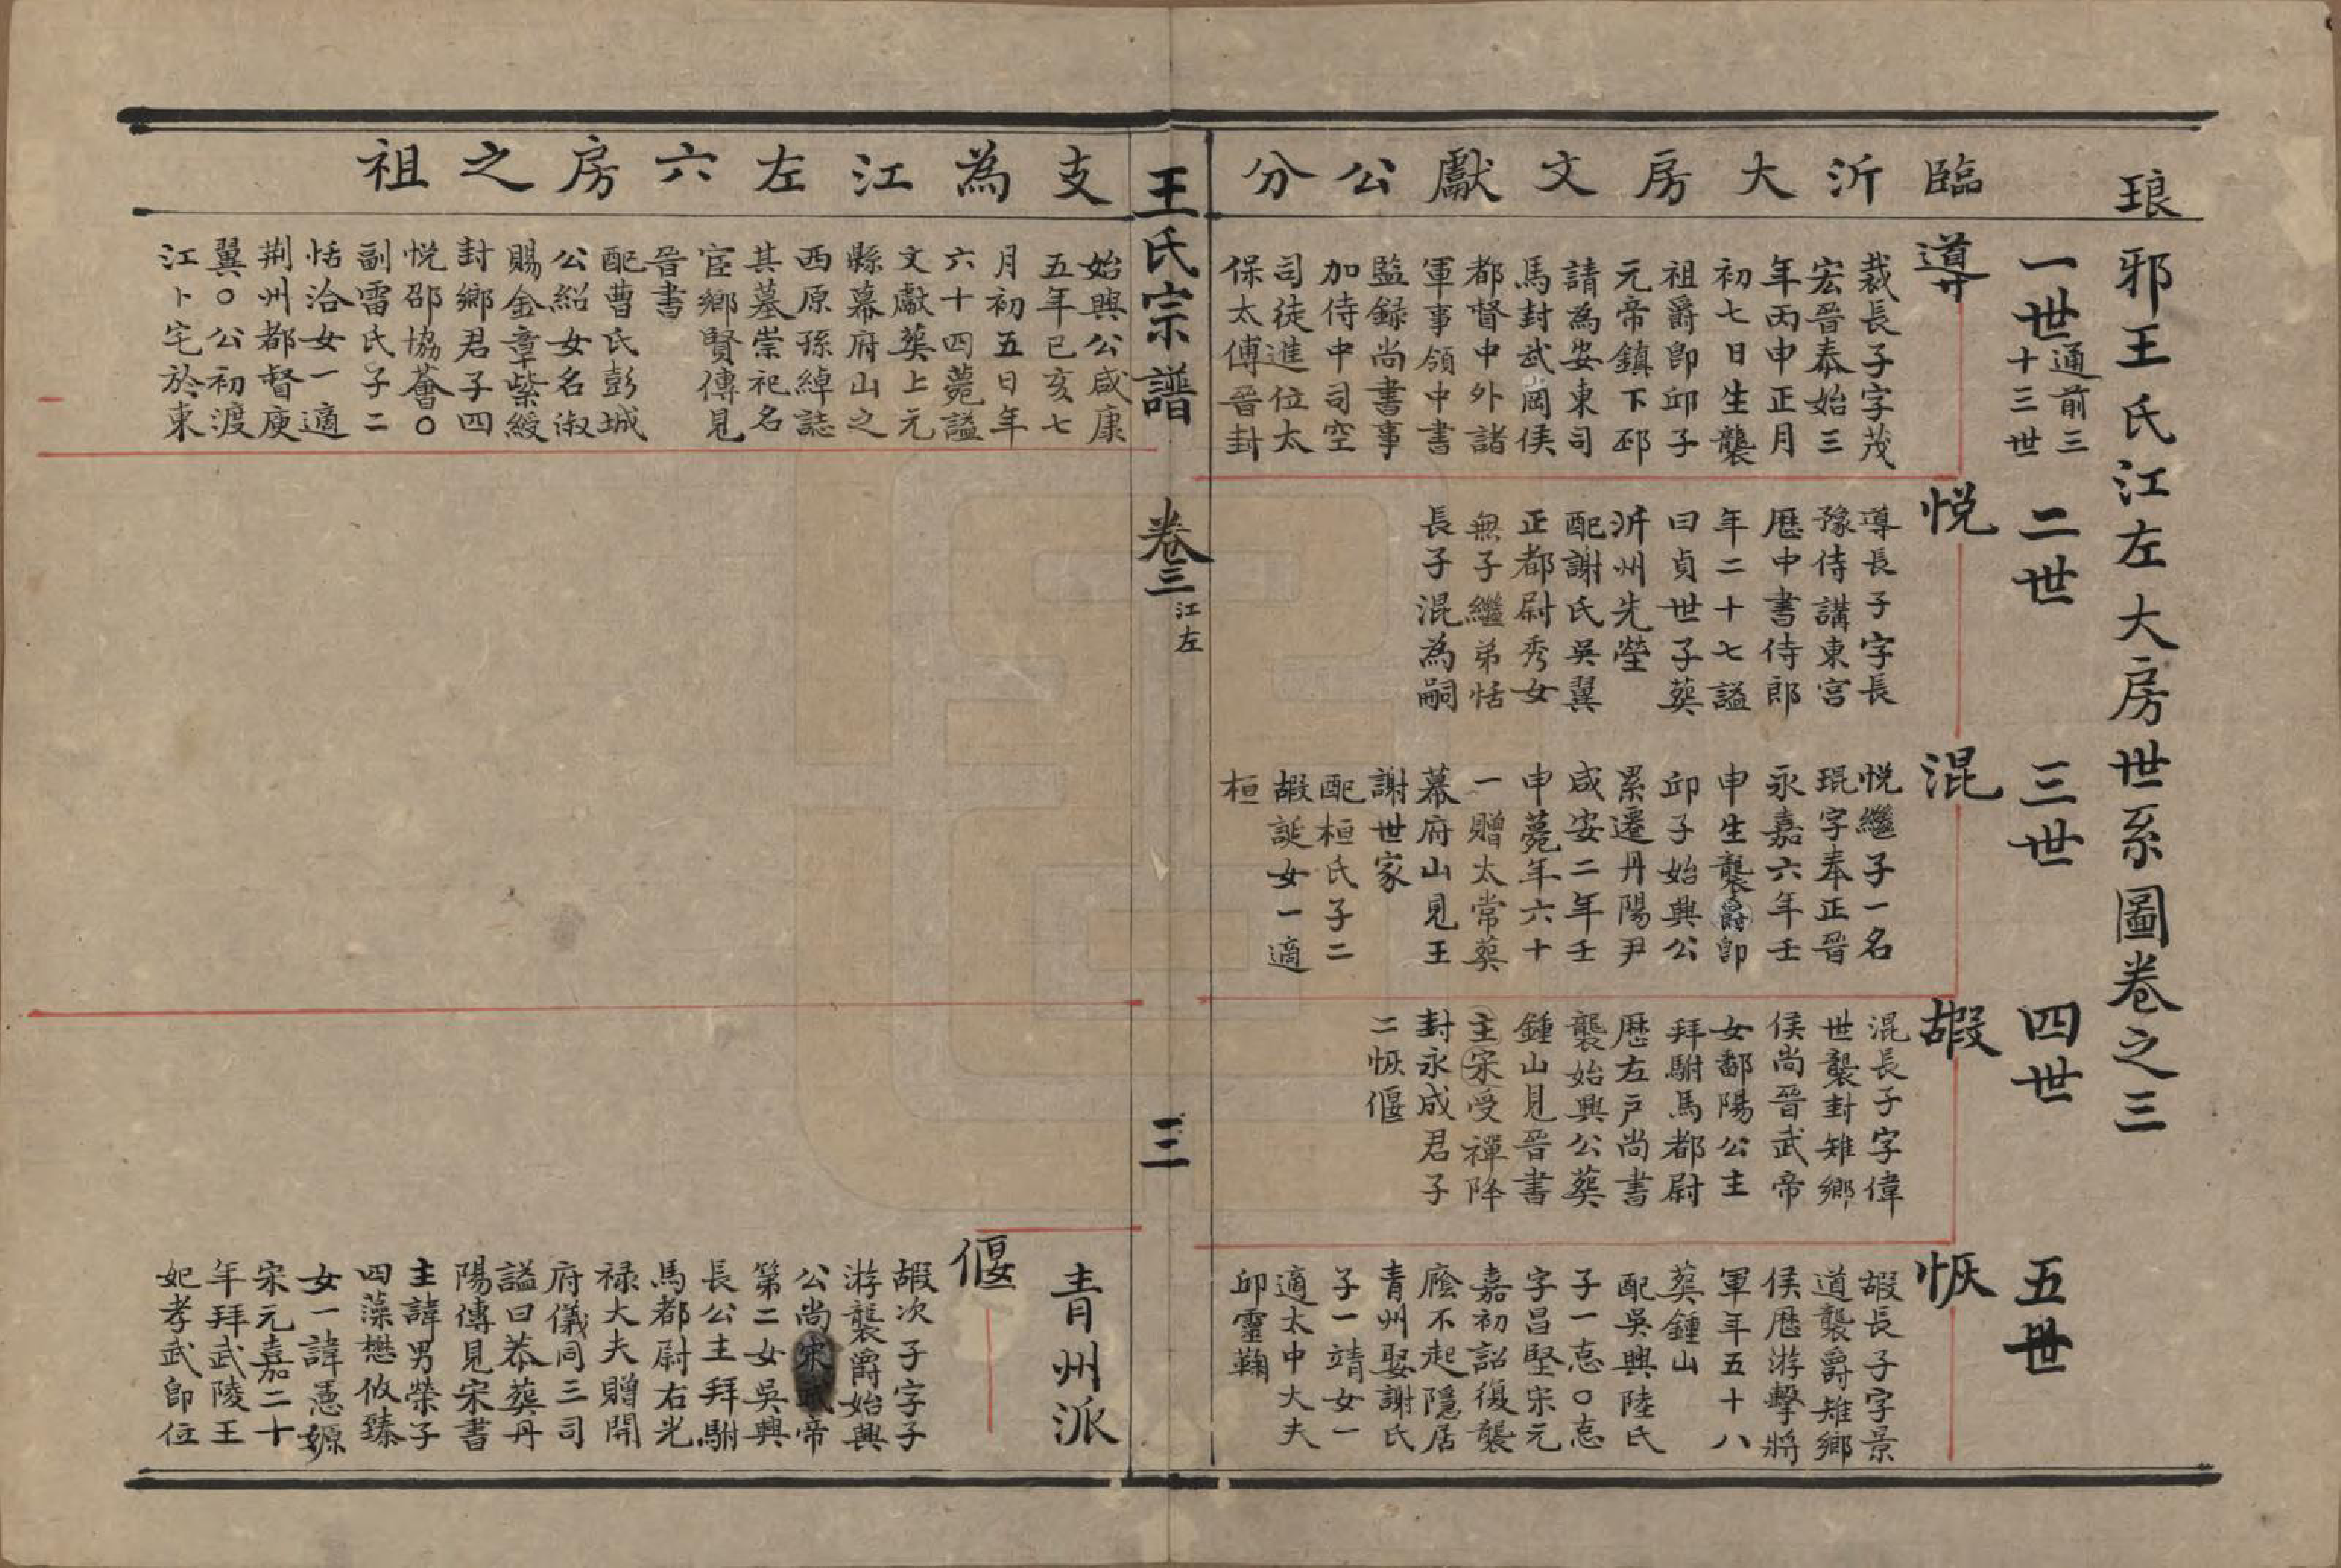 琅邪王氏江左大房世系圖卷之三
臨沂大房文獻公分
一世
通前三
十三世
二世
三世
四世
五世
導
裁長子字茂
宏晉泰始三
年丙申正月
初七日生襲
祖爵即邱子
元帝鎮下邳
請為安東司
馬封武岡侯
都督中外諸
軍事領中書
監録尚書事
加侍中司空
司徒進位太
保太傅晉封
悅
導長子字長
豫侍講東宮
歷中書侍郎
年二十七謚
曰貞世子葬
沂州先塋
配謝氏吳翼
正都尉秀女
無子繼弟恬
長子混為嗣
混
悅繼子一名
琨字奉正晉
永嘉六年壬
申生襲爵即
邱子始興公
累遷丹陽尹
咸安二年壬
申薨年六十
一贈太常葬
幕府山見王
謝世家
配桓氏子二
嘏誕女一適
桓
嘏
混長子字偉
世襲封雉鄉
侯尚晉武帝
女鄱陽公主
拜駙馬都尉
歷左戶尚書
襲始興公葬
鍾山見晉書
主宋受禪降
封永成君子
二恢偃
恢
嘏長子字景
道襲爵雉鄉
侯歷游擊將
軍年五十八
葬鍾山
配吳興陸氏
子一悳○悳
字昌堅宋元
嘉初詔復襲
廕不起隱居
青州娶謝氏
子一靖女一
適太中大夫
邱靈鞠
王氏宗譜
卷三
江左
三
支為江左六房之祖
始興公咸康
五年己亥七
月初五日年
六十四薨謚
文獻葬上元
縣幕府山之
西原孫綽誌
其墓崇祀名
宦鄉賢傳見
晉書
配曹氏彭城
公紹女名淑
賜金章紫綬
封鄉君子四
悅邵協薈○
副雷氏子二
恬洽女一適
荆州都督庾
翼○公初渡
江卜宅於東
青州派
偃
嘏次子字子
游襲爵始興
公尚宋武帝
第二女吳興
長公主拜駙
馬都尉右光
祿大夫贈開
府儀同三司
謚曰恭葬丹
陽傳見宋書
主諱男榮子
四藻懋攸臻
女一諱憲嫄
宋元嘉二十
年拜武陵王
妃孝武即位